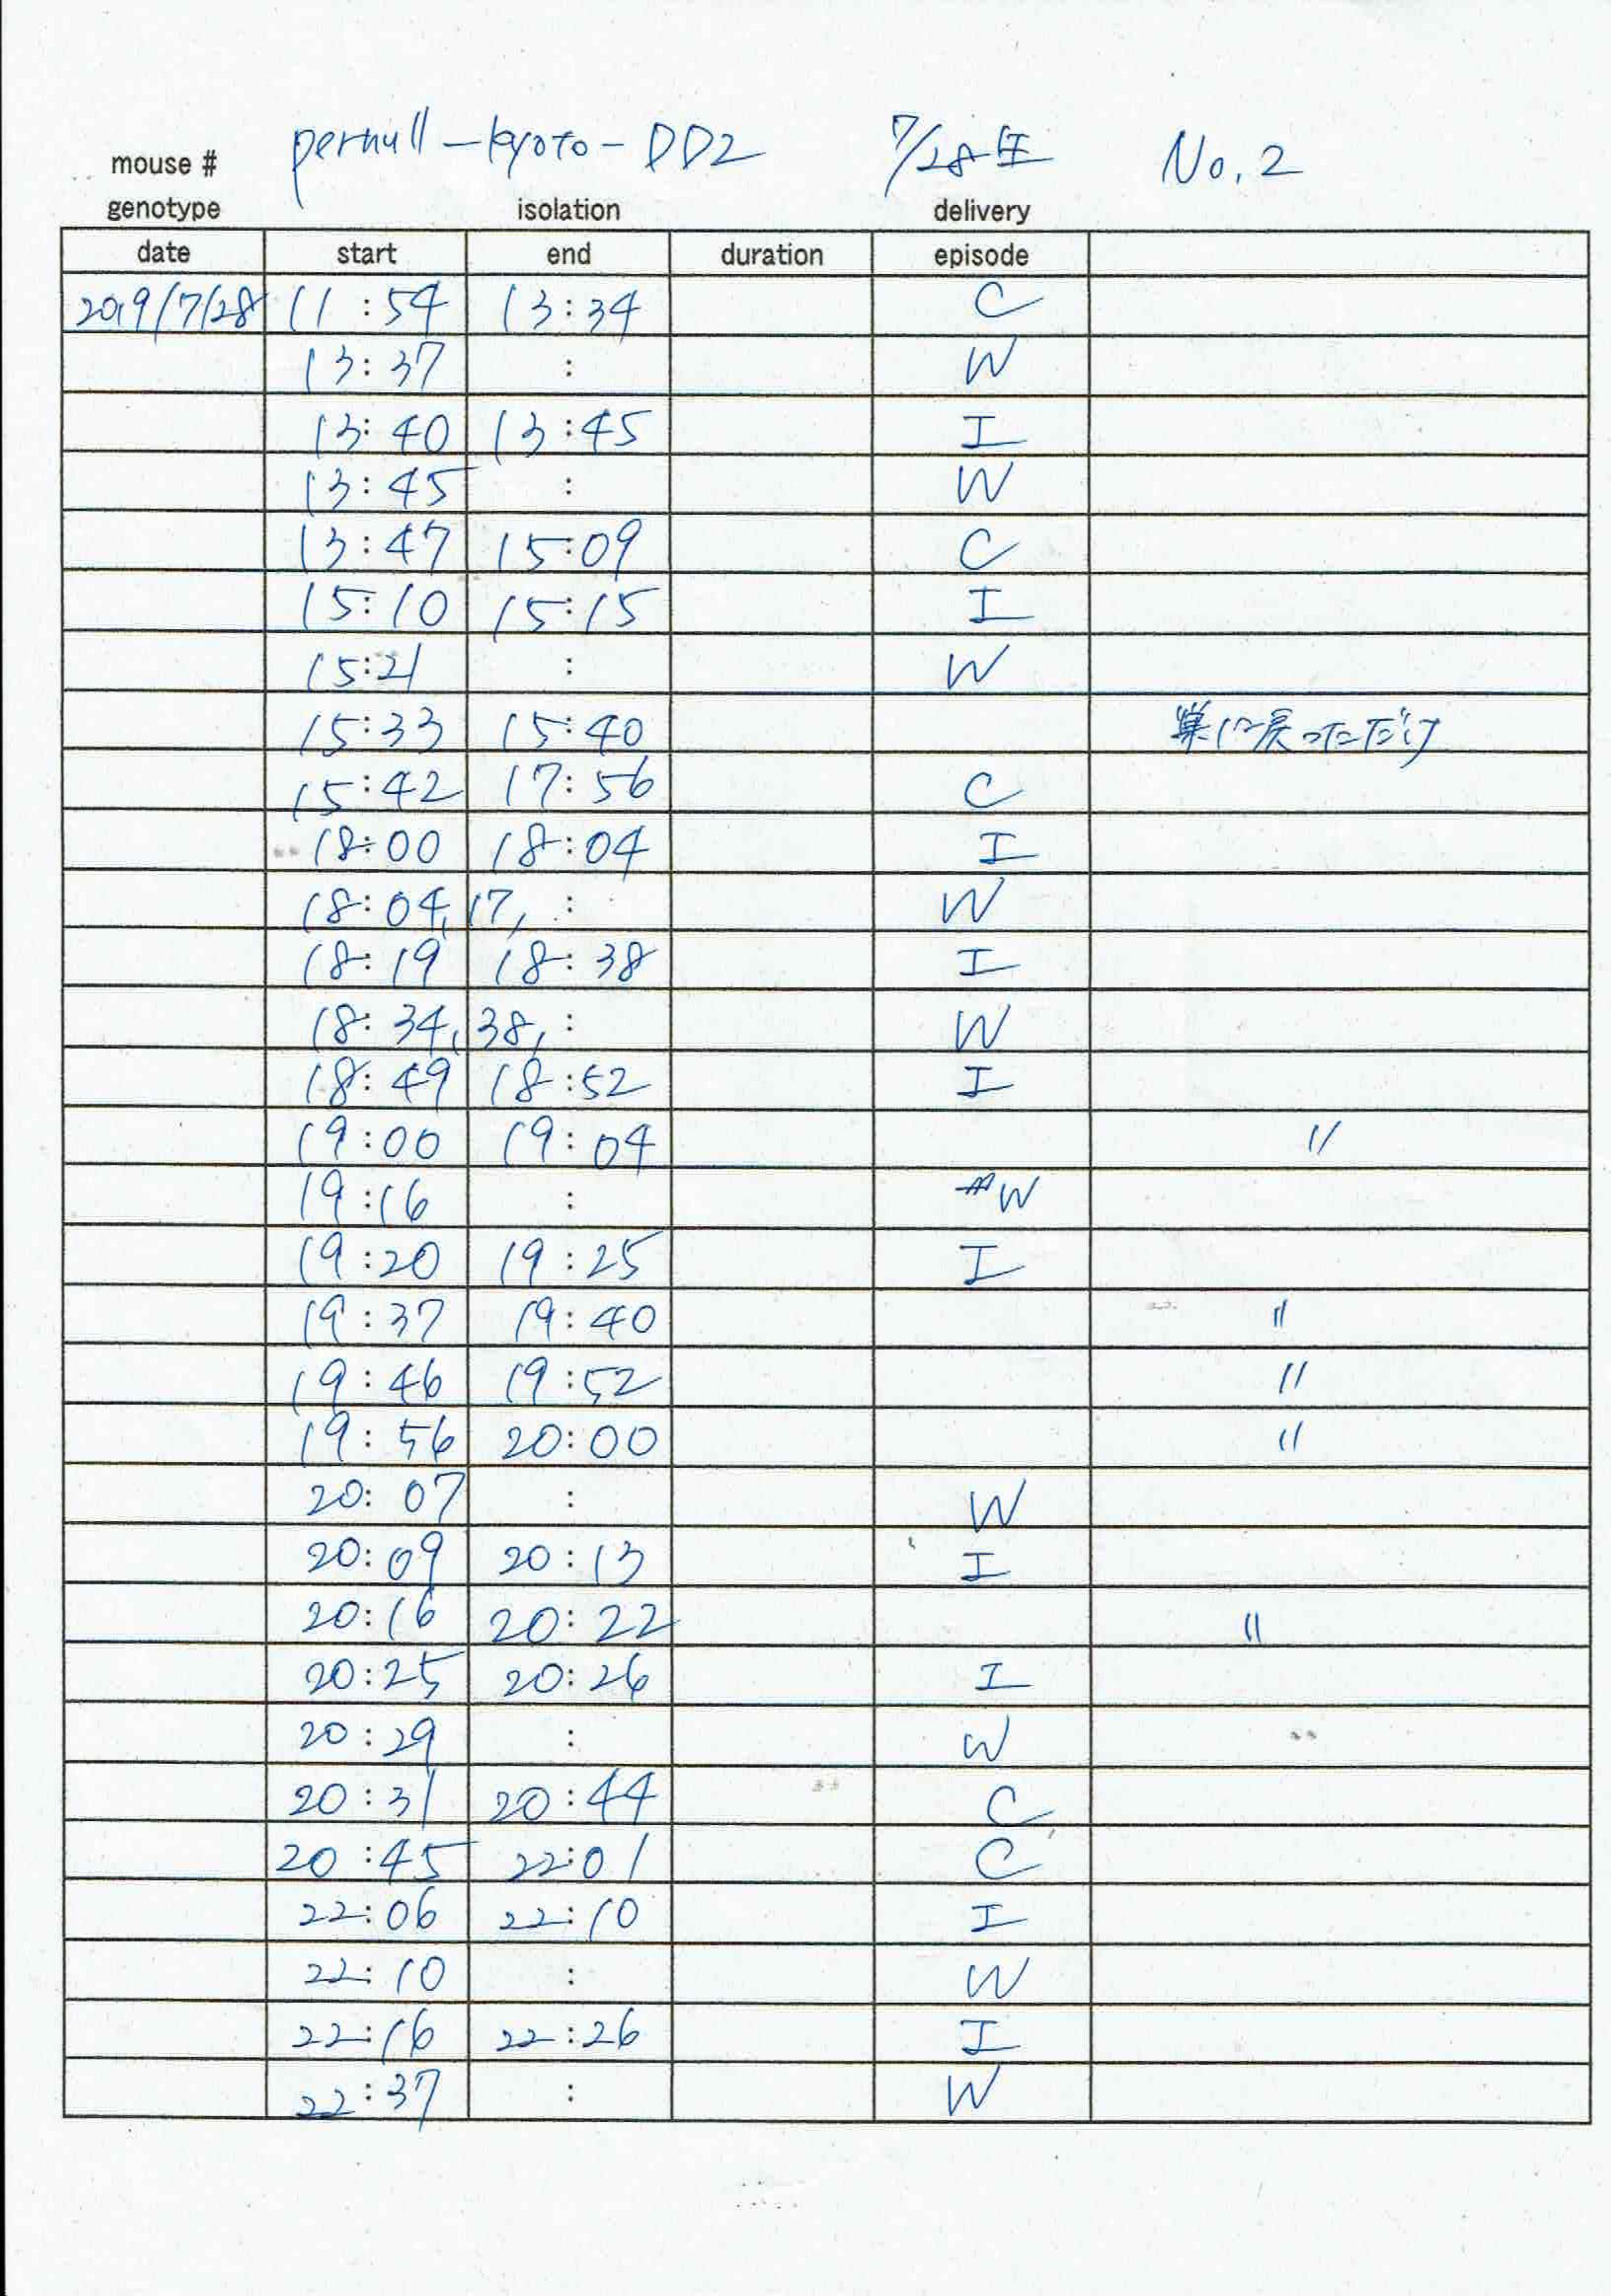 mouse # pernull-kyoto-DD2 7/28生 No.2
genotype isolation delivery
date start end duration episode
2019/7/28 11:54 13:34 C
13:37 : W
13:40 13:45 I
13:45 : W
13:47 15:09 C
15:10 15:15 I
15:21 : W
15:33 15:40 巣に戻っただけ
15:42 17:56 C
18:00 18:04 I
18:04, 17, : W
18:19 18:38 I
18:34, 38, : W
18:49 18:52 I
19:00 19:04 〃
19:16 : W
19:20 19:25 I
19:37 19:40 〃
19:46 19:52 〃
19:56 20:00 〃
20:07 : W
20:09 20:13 I
20:16 20:22 〃
20:25 20:26 I
20:29 : W
20:31 20:44 C
20:45 22:01 C
22:06 22:10 I
22:10 : W
22:16 22:26 I
22:37 : W